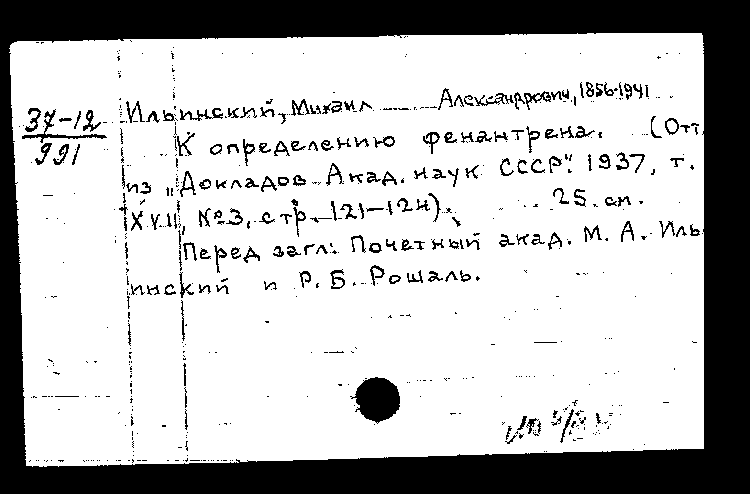 37-12
991
Ильинский, Михаил Александрович, 1856-1941
К определению фенантрена. (Отт.
из „Докладов Акад. наук СССР“. 1937, т.
XVII, №3, стр. 121-124). 25 см.
Перед загл: Почетный акад. М. А. Иль-
инский и Р. Б. Рошаль.